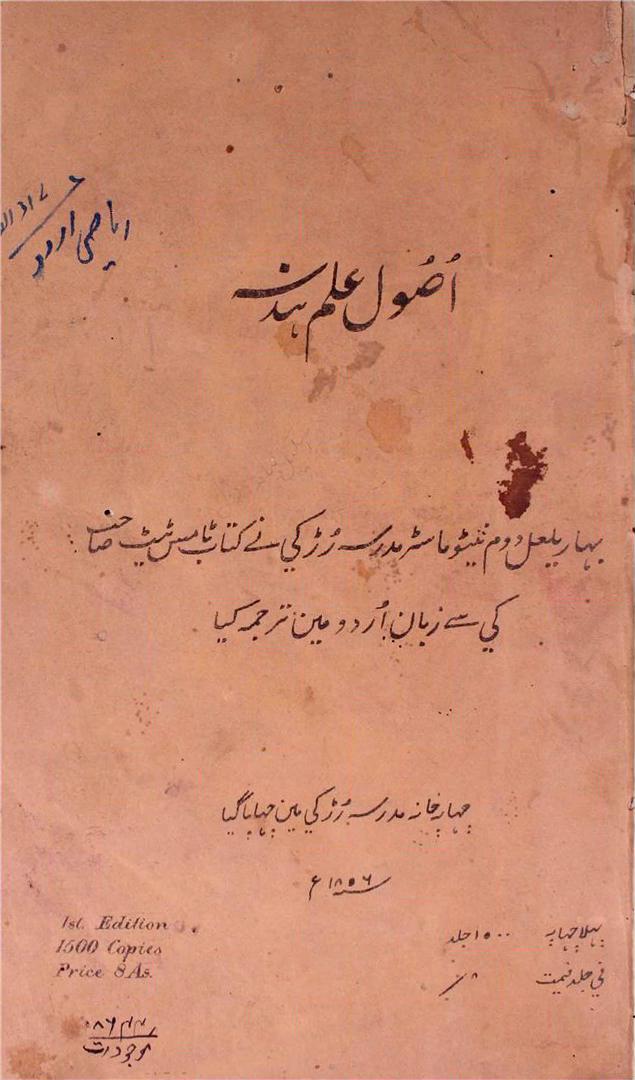 اُصُول علم ہندسہ
بہاریلعل دوم نیٹو ماسٹر مدرسہ رُڑکی نے کتاب ٹامس ٹیٹ صاحب
کی سے زبان اُردو مین ترجمہ کیا
چہاپہ خانہ مدرسہ رُڑکی مین چہاپا گیا
سنہ ۱۸۵۶ ع
1st. Edition
1500 Copies
Price 8 As.
پہلا چہاپہ ۱۵۰۰ جلد
فی جلد قیمت ۸